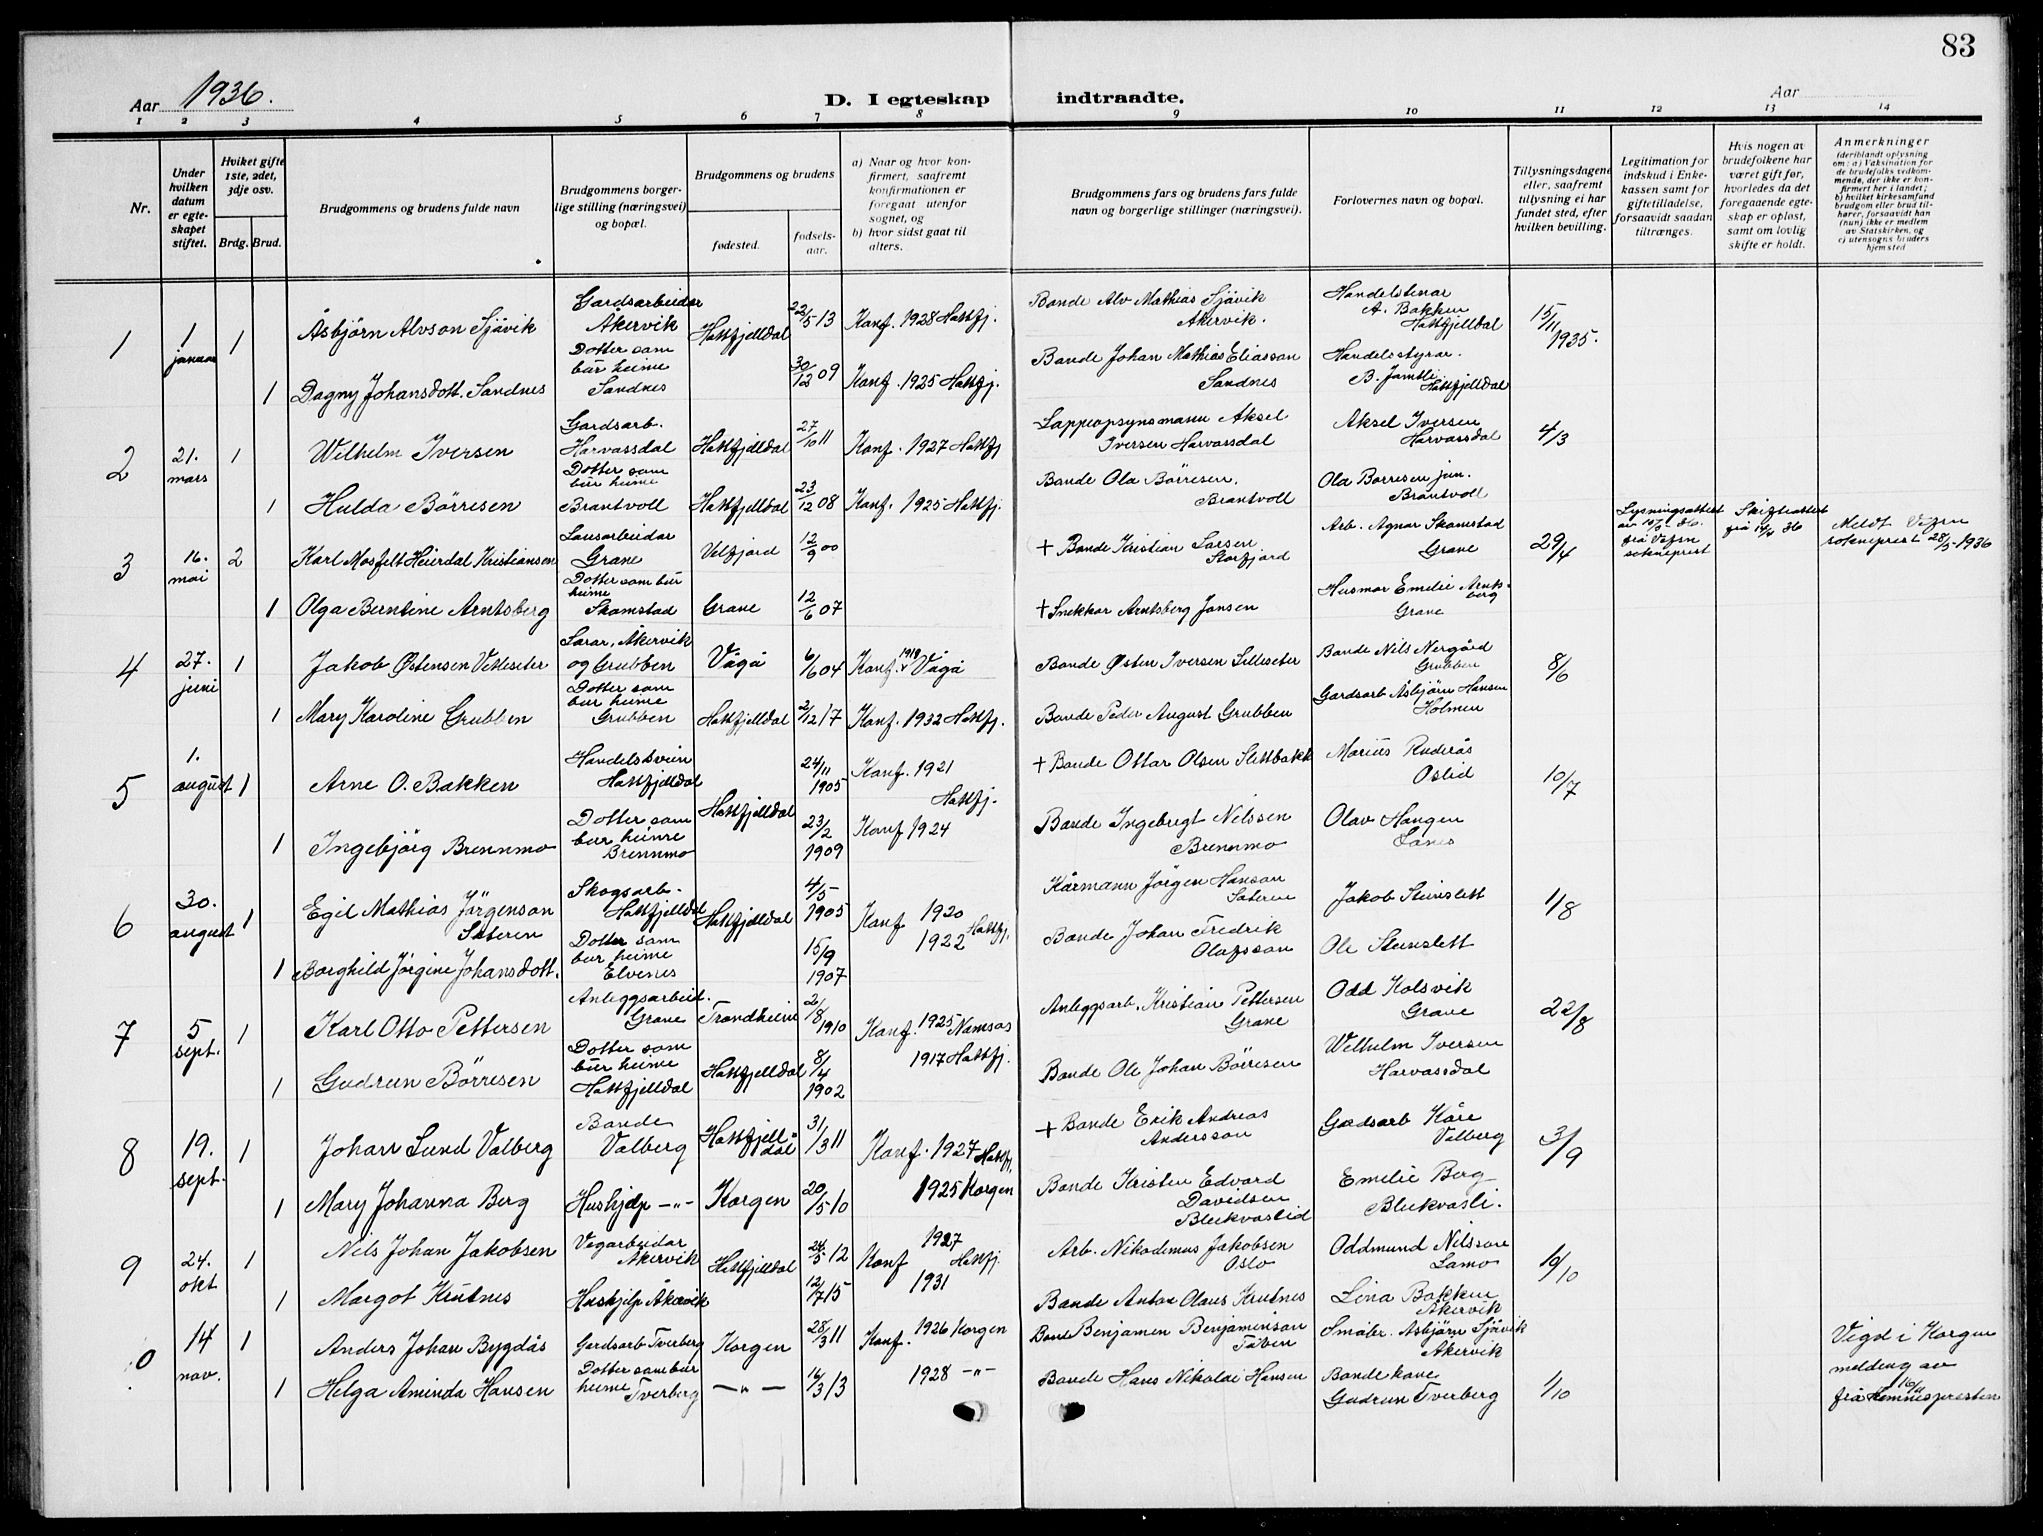 83
Aar 1936.
D. I egteskap indtraadte.
Aar
1 2 3 4 5 6 7 8 9 10 11 12 13 14
Nr.
Under hvilken datum er egteskapet stiftet.
Hviket gifte 1ste, 2det, 3dje osv.
Brdg. Brud.
Brudgommens og brudens fulde navn
Brudgommens borgerlige stilling (næringsvei) og bopæl.
Brudgommens og brudens
fødested.
fødselsaar.
a) Naar og hvor konfirmert, saafremt konfirmationen er foregaat utenfor sognet, og
b) hvor sidst gaat til alters.
Brudgommens fars og brudens fars fulde navn og borgerlige stillinger (næringsvei).
Forlovernes navn og bopæl.
Tillysningsdagene eller, saafremt tillysning ei har fundet sted, efter hvilken bevilling.
Legitimation for indskud i Enkekassen samt for giftetilladelse, forsaavidt saadan tiltrænges.
Hvis nogen av brudefolkene har været gift før, hvorledes da det foregaaende egteskap er opløst, samt om lovlig skifte er holdt.
Anmerkninger (deriblandt oplysning om: a) Vaksination for de brudefolks vedkommende, der ikke er konfirmert her i landet; b) hvilket kirkesamfund brudgom eller brud tilhører, forsaavidt han (hun) ikke er medlem av Statskirken, og c) utensogns bruders hjemsted
1 1 januar 1 Åsbjørn Alvson Sjåvik Gardsarbeidar Åkervik Hattfjelldal 22/5 13 Konf. 1928 Hattfj. Bonde Alv Mathias Sjåvik Åkervik. Handelstenar A. Bakken Hattfjelldal 15/11 1935.
1 Dagny Johansdott. Sandnes Dotter som bur heime Sandnes 30/12 09 Konf. 1925 Hattfj. Bonde Johan Mathias Eliasson Sandnes Handelsstyrar. B. Jamtli Hattfjelldal
2 21. mars 1 Wilhelm Iversen Gardsarb. Harvassdal Hattfjelldal 27/10 11 Konf. 1927 Hattfj Lappeopsynsmann Aksel Iversen Harvassdal Aksel Iversen Harvassdal 4/3
1 Hulda Börresen Dotter som bur heime Brantvoll Hattfjelldal 23/12 08 Konf. 1925 Hattfj. Bonde Ola Börresen. Brantvoll Ola Börresen jun. Brantvoll
3 16. mai 2 Karl Mosfelt Heierdal Kristiansen Lausarbeidar Grane Velfjord 12/9 00 + Bonde Kristian Larsen Storfjord Arb. Agnar Skamstad Grane 29/4 Lysningsattest av 10/5 36. frå Vefsn sokneprest Skifteattest frå 14/4 36 Meldt Vefsn sokneprest 28/5-1936
1 Olga Berntine Arntsberg Dotter som bur heime Skamstad Grane 12/6 07 + Snekkar Arntsberg Jansen Husmor Emelie Arntsberg Grane
4 27. juni 1 Jakob Østensen Vetleseter Lærar, Åkervik og Grubben Vågå 6/6 04 Konf. 1919 Vågå Bonde Østen Iversen Lilleseter Bonde Nils Nergård Grubben 8/6
1 Mary Karoline Grubben Dotter som bur heime Grubben Hattfjelldal 2/12 17 Konf. 1932 Hattfj. Bonde Peder August Grubben Gardsarb Åsbjørn Hansen Holmen
5 1. august 1 Arne O. Bakken Handelsbetjent Hattfjelldal Hattfjelldal 24/11 1905 Konf. 1921 Hattfj. + Bonde Ottar Olsen Slettbakk Marius Ruderås Oslid 10/7
1 Ingebjörg Brennmo Dotter som bur heime Brennmo 23/2 1909 Konf 1924 Bonde Ingebrigt Nilssen Brennmo Olav Haugen
6 30. august 1 Egil Mathias Jörgenson Sæteren Skogsarb. Hattfjelldal Hattfjelldal 4/5 1905 Konf 1920 Hattfj. Kårmann Jörgen Hanson Sæteren Jakob Steinslett 1/8
1 Borghild Jörgine Johansdott. Dotter som bur heime Elvenes 15/9 1907 1922 Bonde Johan Fredrik Olafsson Ole Steinslett
7 5 sept. 1 Karl Otto Pettersen Anleggsarbeid. Grane Trondheim 2/8 1910 Konf. 1925 Namsos Anleggsarb. Kristian Pettersen Grane Odd Kolsvik Grane 22/8
1 Gudrun Börresen Dotter som bur heime Hattfjelldal Hattfjelldal 8/4 1902 1917 Hattfj. Bonde Ole Johan Börresen Wilhelm Iversen Harvassdal
8 19. sept. 1 Johan Lund Valberg Bonde Valberg Hattfjelldal 31/3 11 Konf. 1927 Hattfj. + Bonde Erik Andreas Andersson Gardsarb Kåre Valberg 3/9
1 Mary Johanna Berg Hushjelp -"- Korgen 20/5 10 1925 Korgen Bonde Kristen Edvard Davidsen Bleikvaslid Emelie Berg Bleikvasli.
9 24. okt 1 Nils Johan Jakobsen Vegarbeidar Åkervik Hattfjelldal 24/5 12 Konf 1927 Hattfj. Arb. Nikodemus Jakobsen Oslo Oddmund Nilsson Lamo 10/10
1 Margot Krutnes Hushjelp Åkervik 12/7 15 1931 Bonde Anton Olaus Krutnes Lina Bakken Åkervik
10 14 nov. 1 Anders Johan Bygdås Gardsarb Tverberg Korgen 28/3 11 Konf. 1926 Korgen Bonde Benjamen Benjaminson Småbr. Asbjörn Sjåvik Åkervik Vigd i Korgen melding av 16/11 frå Hemnespresten
1 Helga Aminda Hansen Dotter som bur heime Tverberg -"- 16/3 13 1928 -"- Bonde Hans Nikolai Hansen Bondekone Gudrun Tverberg 1/10